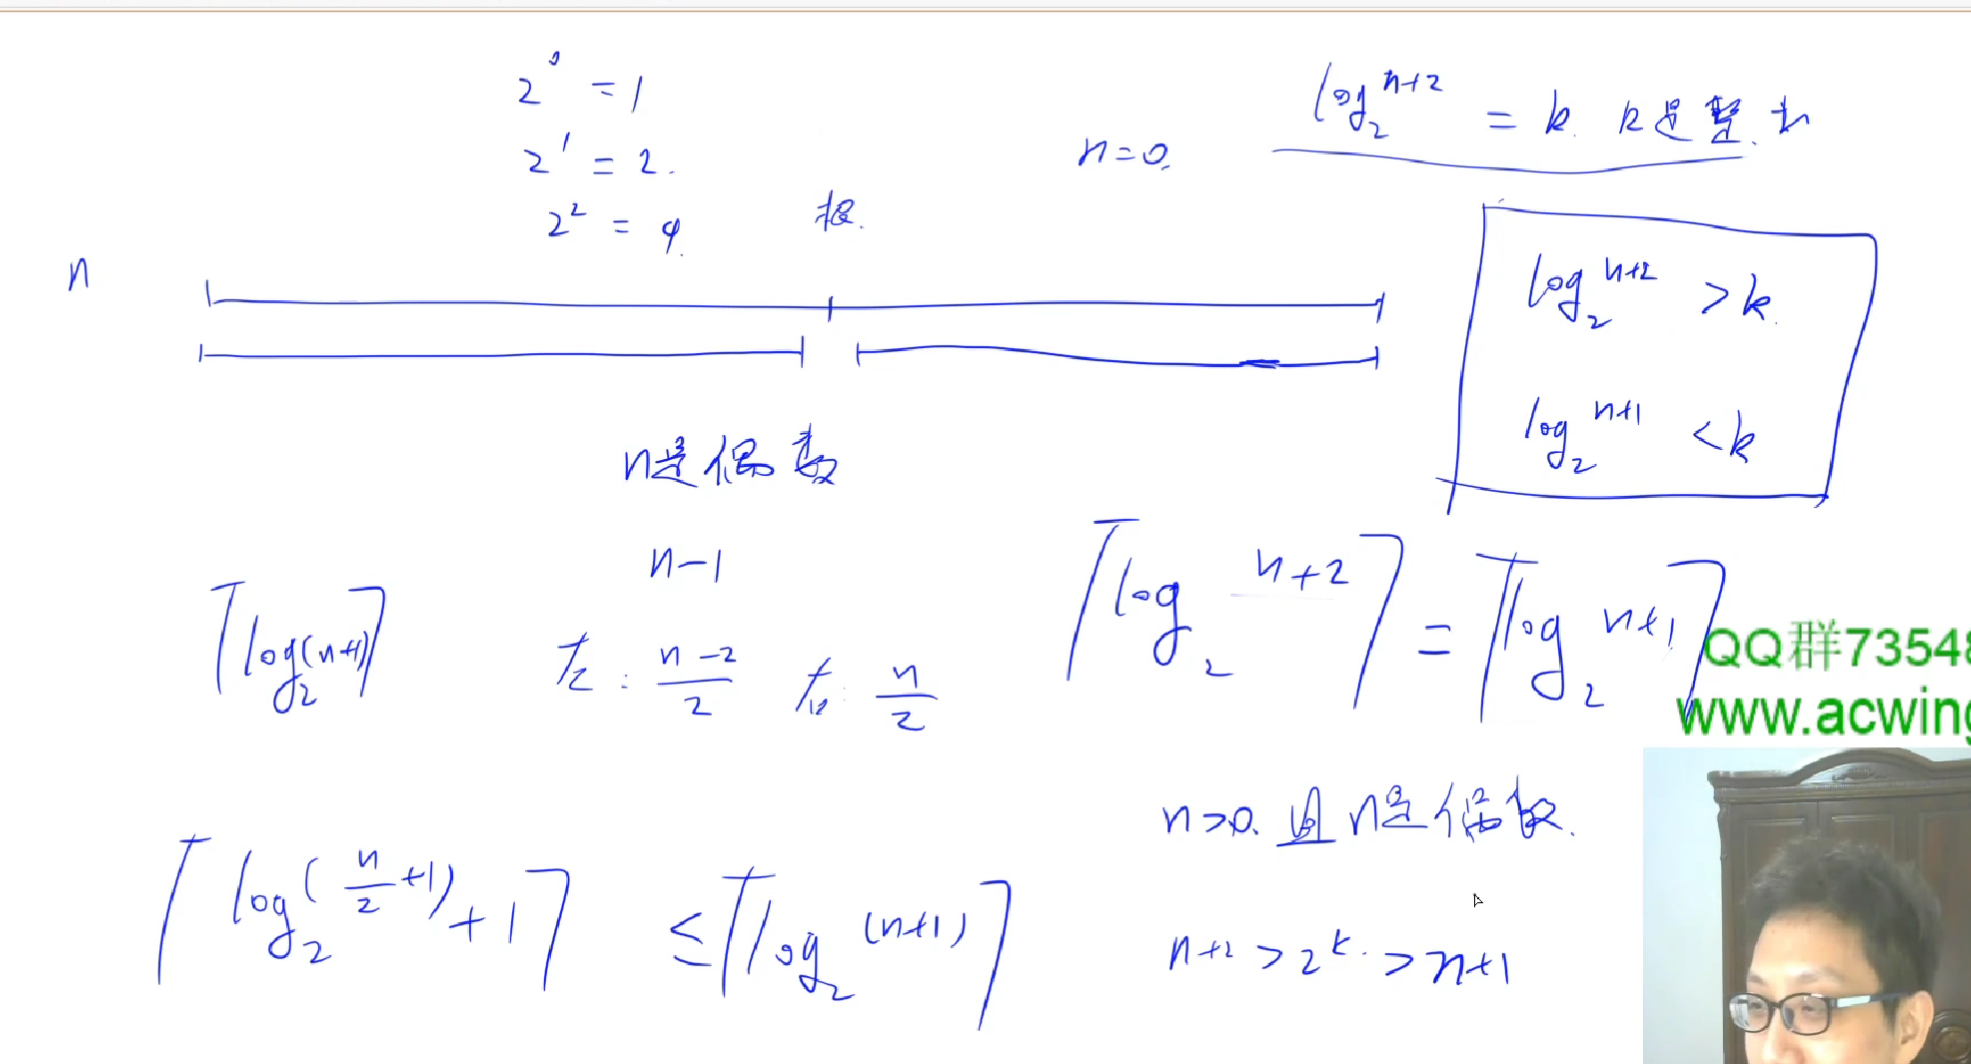 2^0 = 1
2^1 = 2.
2^2 = 4.
n=0.
log_2^{n+2} = k. k是整
n
log_2^{n+2} > k.
log_2^{n+1} < k
n是偶数
n-1
⌈log_2(n+1)⌉
左: \frac{n-2}{2} 右: \frac{n}{2}
⌈log_2^{n+2}⌉ = ⌈log_2^{n+1}⌉
QQ群7354
www.acwing
n>0. 且 n是偶数.
⌈log_2(\frac{n}{2}+1)+1⌉ ≤ ⌈log_2(n+1)⌉
n+2 > 2^k. > n+1